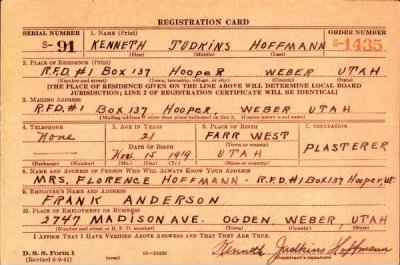 REGISTRATION CARD
SERIAL NUMBER 1. NAME (Print) ORDER NUMBER
S- 91 KENNETH JUDKINS HOFFMANN S-1435
(First) (Middle) (Last)
2. PLACE OF RESIDENCE (Print)
R.F.D. #1 Box 137 Hooper WEBER UTAH
(Number and street) (Town, township, village, or city) (County) (State)
[THE PLACE OF RESIDENCE GIVEN ON THE LINE ABOVE WILL DETERMINE LOCAL BOARD
JURISDICTION; LINE 2 OF REGISTRATION CERTIFICATE WILL BE IDENTICAL]
3. MAILING ADDRESS
R.F.D. #1 Box 137 Hooper, WEBER UTAH.
4. TELEPHONE 5. AGE IN YEARS 6. PLACE OF BIRTH 7. OCCUPATION
None 21 FARR WEST PLASTERER
DATE OF BIRTH (Town or county)
Nov. 15 1919 UTAH
(Exchange) (Number) (Mo.) (Day) (Yr.) (State or country)
8. NAME AND ADDRESS OF PERSON WHO WILL ALWAYS KNOW YOUR ADDRESS
MRS. FLORENCE HOFFMANN - R.F.D. #1 Box 137 Hooper, Ut.
9. EMPLOYER'S NAME AND ADDRESS
FRANK ANDERSON
10. PLACE OF EMPLOYMENT OR BUSINESS
2747 MADISON AVE. OGDEN, WEBER, UTAH
(Number and street or R. F. D. number) (Town) (County) (State)
I AFFIRM THAT I HAVE VERIFIED ABOVE ANSWERS AND THAT THEY ARE TRUE.
Kenneth Judkins Hoffmann
D. S. S. Form 1 (over) (Registrant's signature)
(Revised 6-9-41)